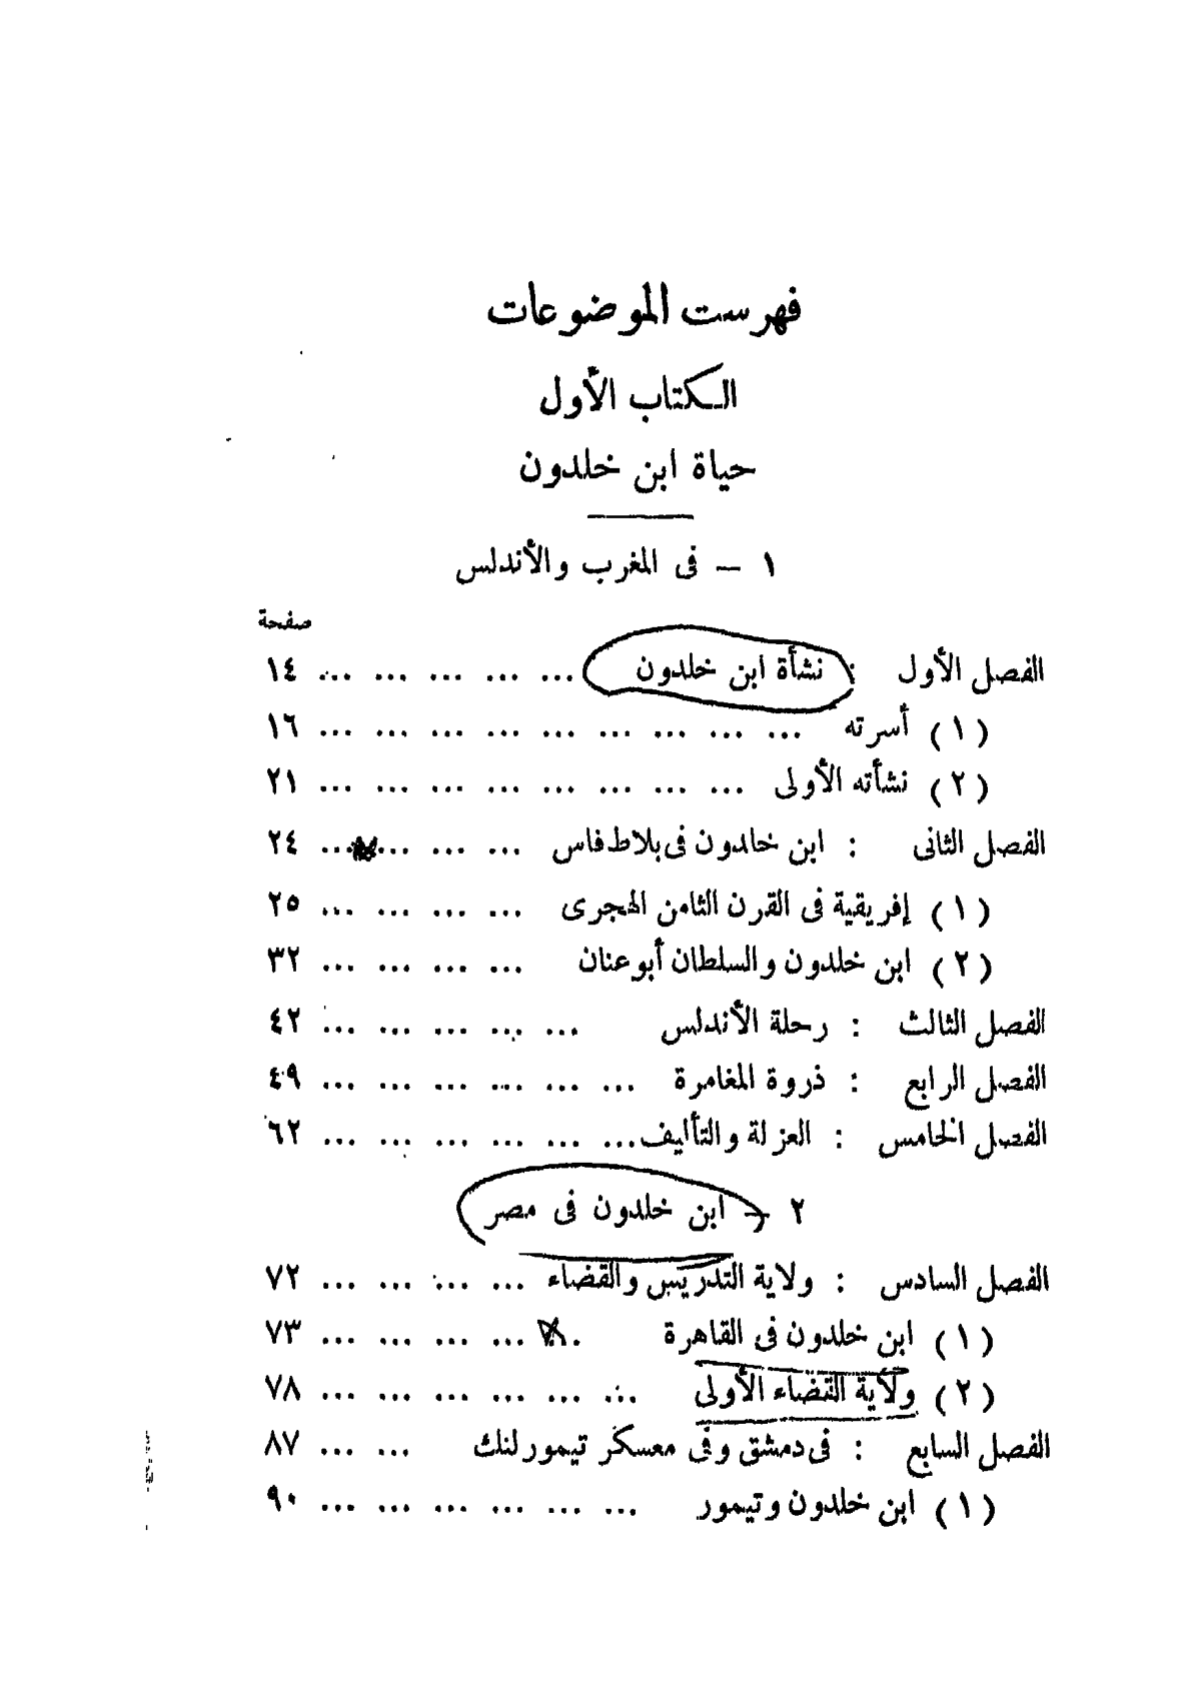 فهرست الموضوعات
الكتاب الأول
حياة ابن خلدون
١ — فى المغرب والأندلس
صفحة
الفصل الأول : نشأة ابن خلدون ... ... ... ... ... ١٤
(١) أسرته ... ... ... ... ... ... ... ... ... ١٦
(٢) نشأته الأولى ... ... ... ... ... ... ... ... ٢١
الفصل الثانى : ابن خلدون فى بلاط فاس ... ... ... ... ٢٤
(١) إفريقية فى القرن الثامن الهجرى ... ... ... ... ٢٥
(٢) ابن خلدون والسلطان أبو عنان ... ... ... ... ٣٢
الفصل الثالث : رحلة الأندلس ... ... ... ... ... ٤٢
الفصل الرابع : ذروة المغامرة ... ... ... ... ... ... ٤٩
الفصل الخامس : العزلة والتأليف ... ... ... ... ... ... ٦٢
٢ — ابن خلدون فى مصر
الفصل السادس : ولاية التدريس والقضاء ... ... ... ... ٧٢
(١) ابن خلدون فى القاهرة ... ... ... ... ٧٣
(٢) ولاية القضاء الأولى ... ... ... ... ... ... ٧٨
الفصل السابع : فى دمشق وفى معسكر تيمور لنك ... ... ٨٧
(١) ابن خلدون وتيمور ... ... ... ... ... ... ٩٠